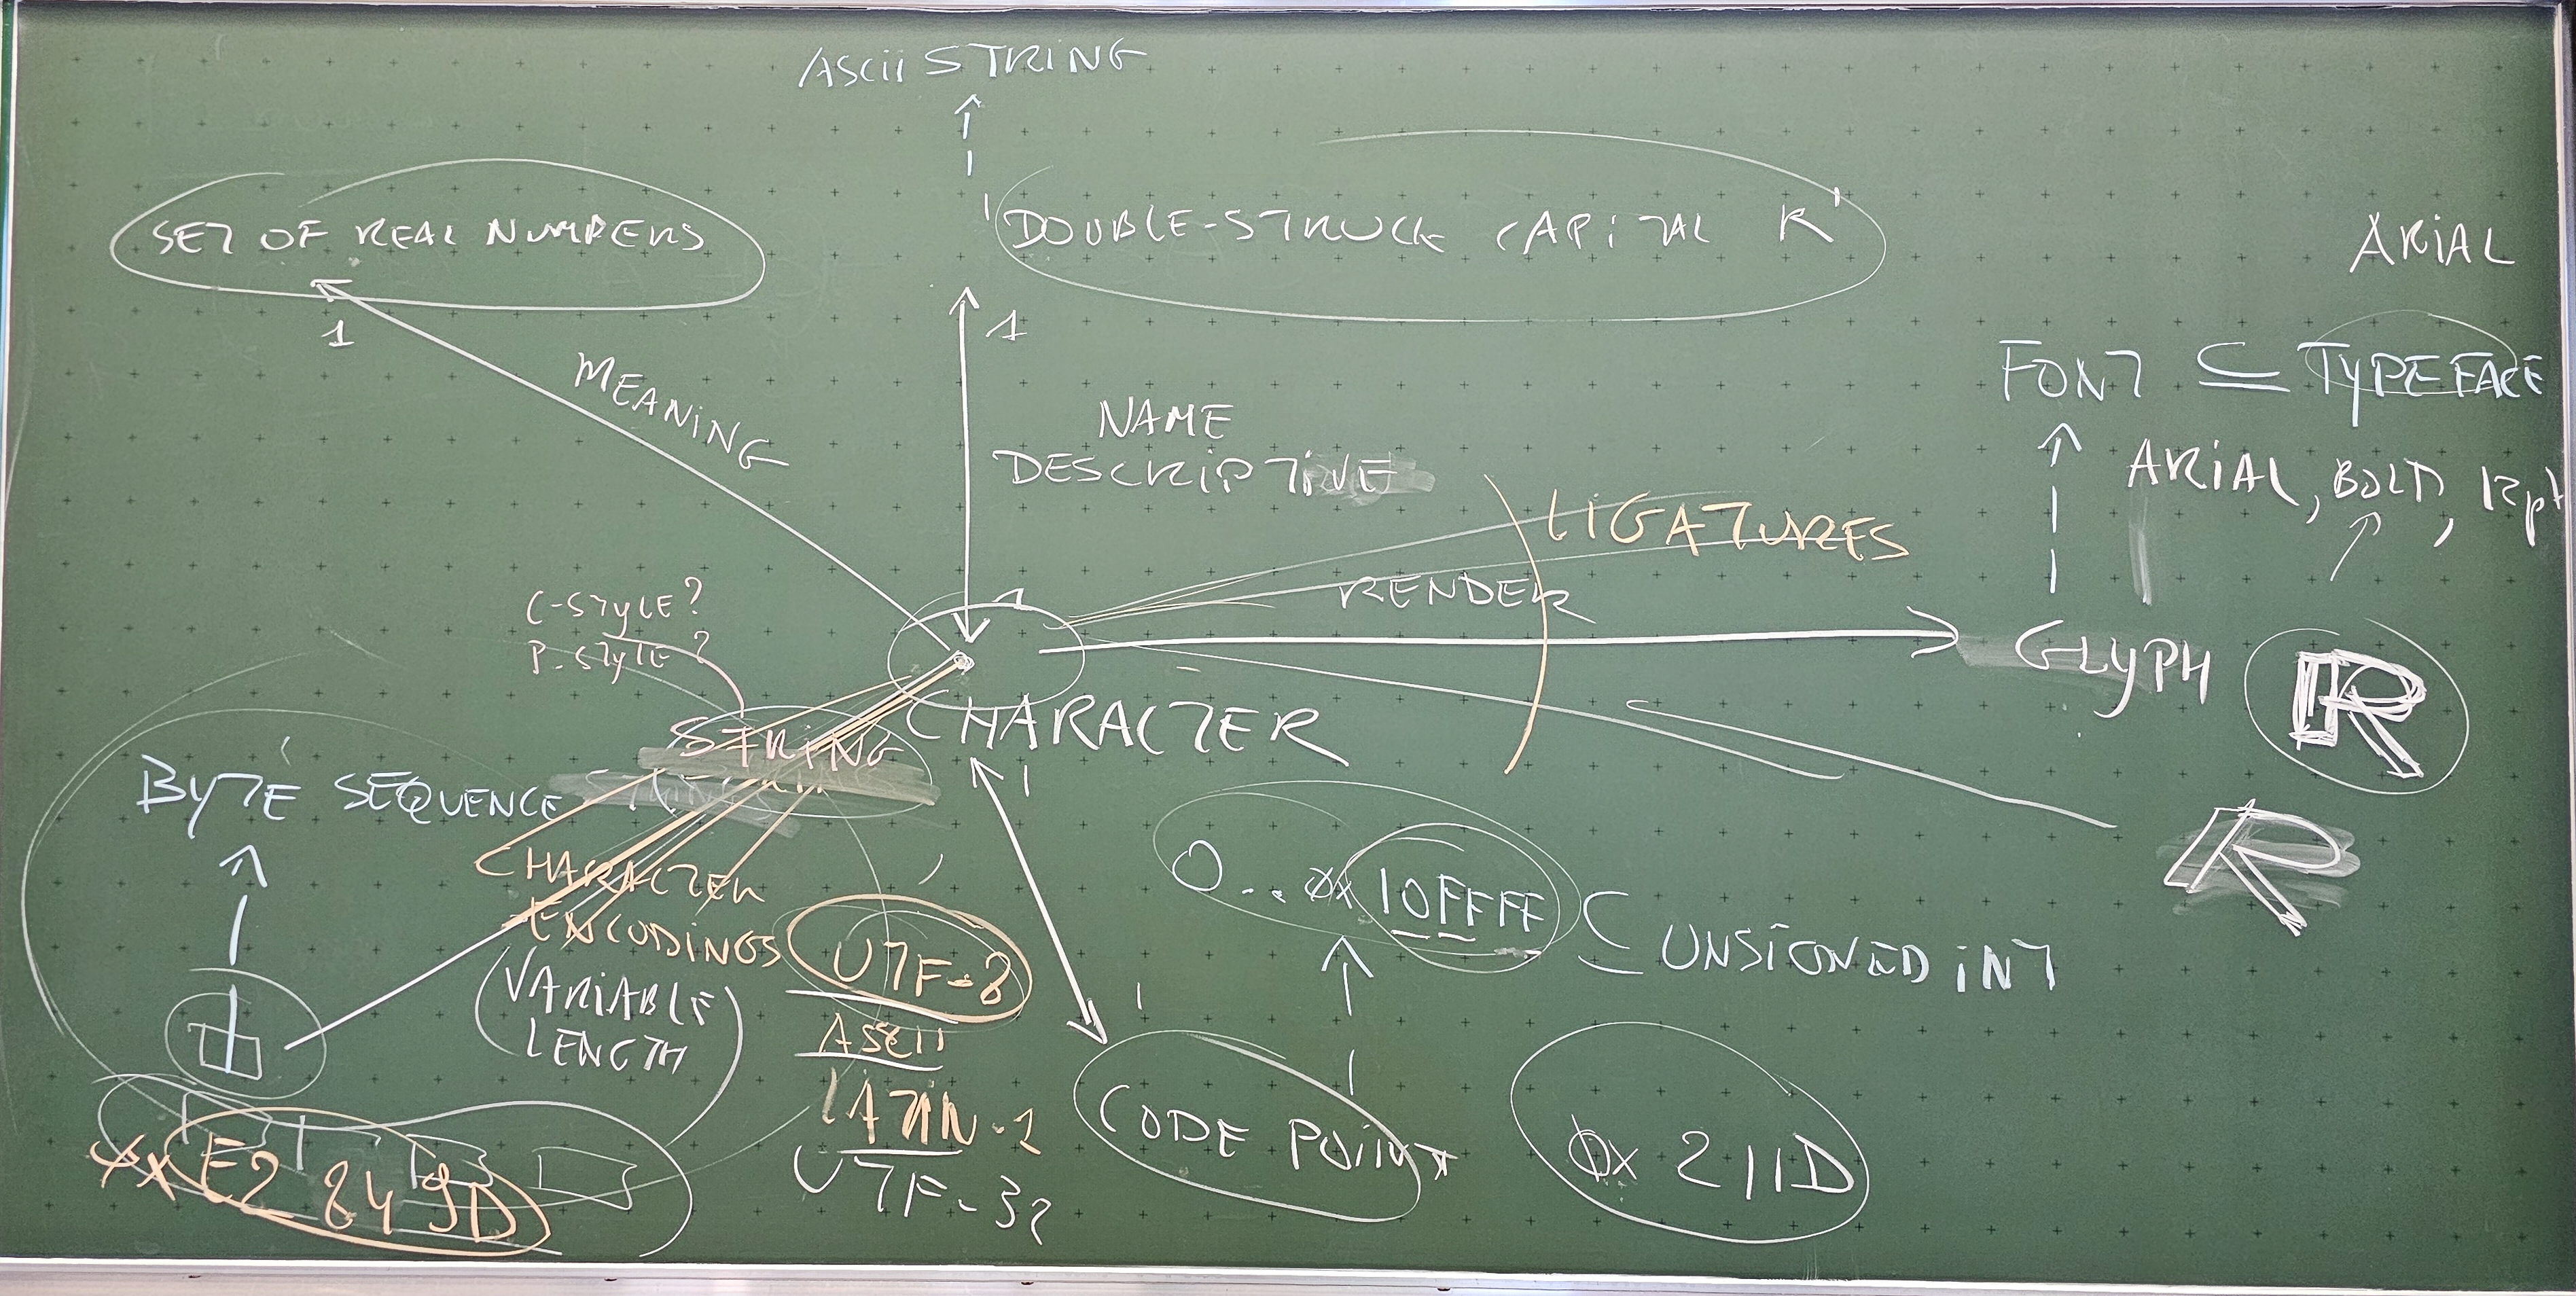 ASCII STRING
SET OF REAL NUMBERS
'DOUBLE-STRUCK CAPITAL R'
ARIAL
1
1
FONT ⊆ TYPEFACE
MEANING
NAME
DESCRIPTIVE
ARIAL, BOLD, 12pt
LIGATURES
RENDER
C-STYLE?
P-STYLE?
1
GLYPH ℝ
CHARACTER
STRING
BYTE SEQUENCE
1
ℝ
CHARACTER
ENCODINGS
(VARIABLE
LENGTH)
UTF-8
ASCII
LATIN-1
UTF-32
0..0x10FFFF ⊆ UNSIGNED INT
1
CODE POINT
0x211D
0xE2849D